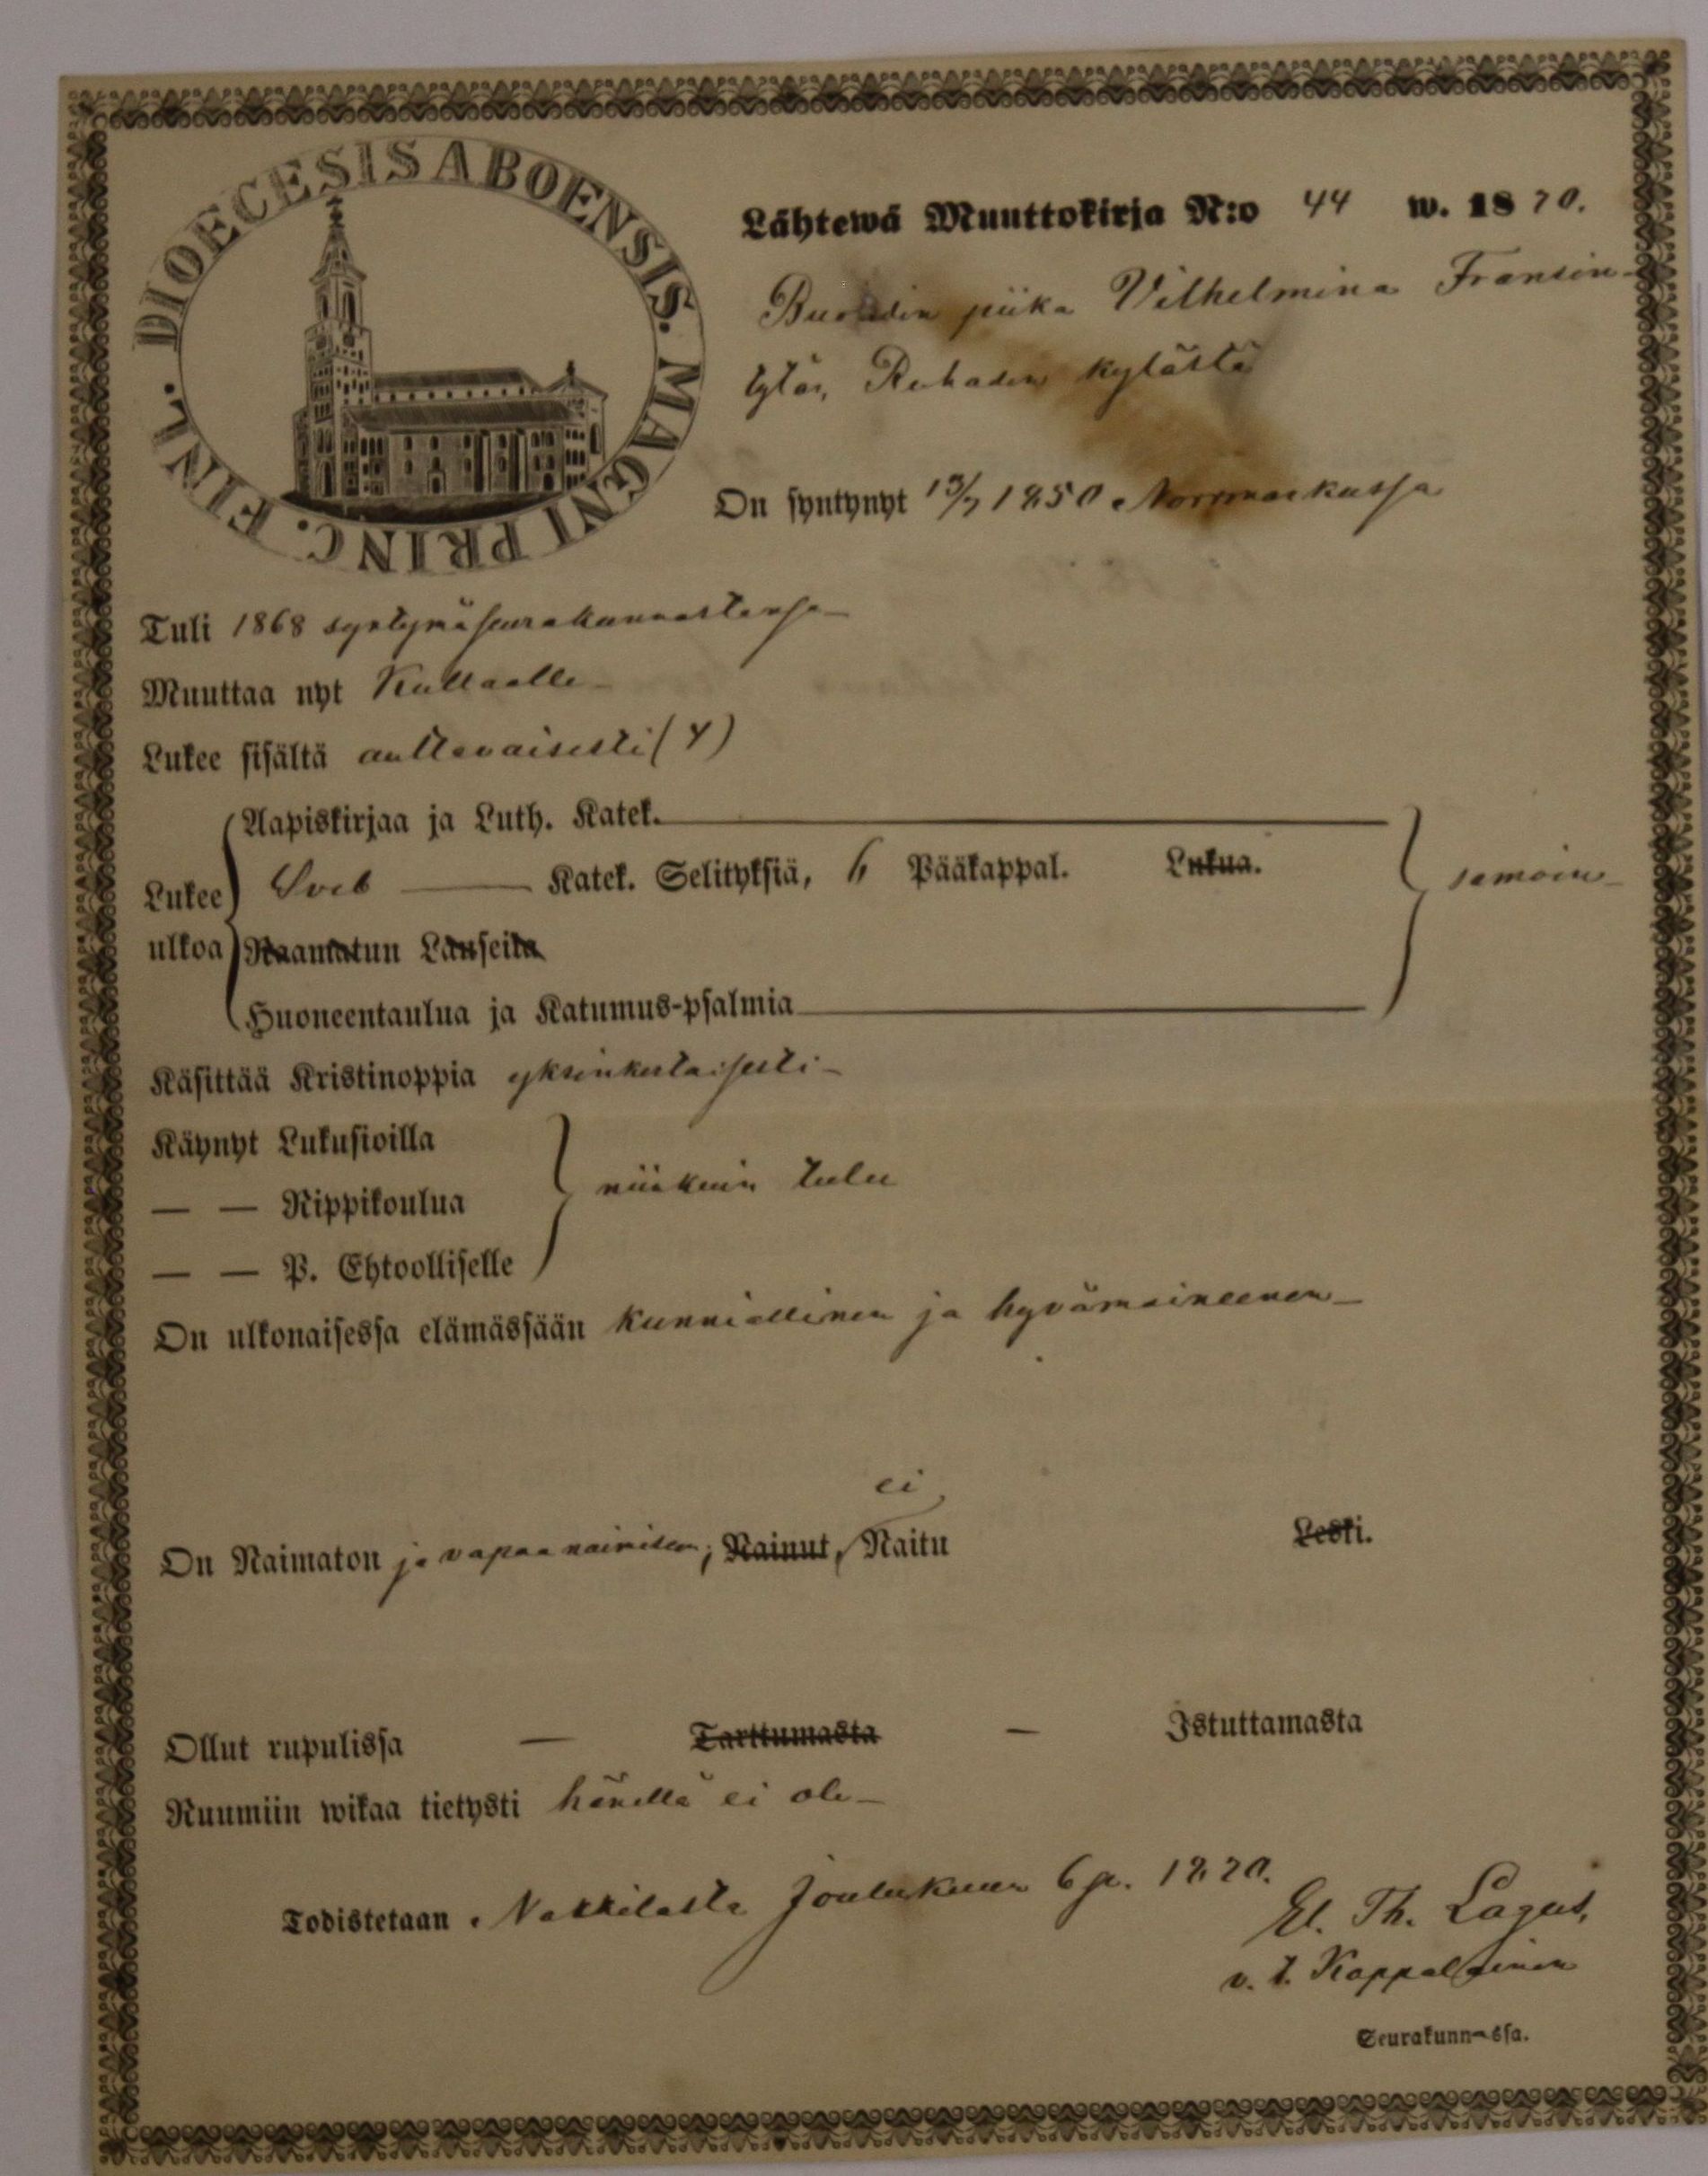 DIOECESIS ABOENSIS. MAGNI PRINC. FINL.
Lähtewä Muuttokirja N:o 44 w. 1870.
piika Vilhelmina Fransin
tytär, kylästä
On syntynyt 13/7 1850 Norrmarkussa
Tuli 1868 syntymäseurakunnastansa
Muuttaa nyt Kullaalle
Lukee sisältä auttavaisesti (4)
Aapiskirjaa ja Luth. Katek.
Lukee Sveb Katek. Selityksiä, 6 Pääkappal. Lukua. samoin
ulkoa Raamatun Lauseita
Huoneentaulua ja Katumus-psalmia
Käsittää Kristinoppia yksinkertaisesti
Käynyt Lukusioilla
— — Rippikoulua niinkuin tulee
— — P. Ehtoolliselle
On ulkonaisessa elämässään kunniallinen ja hyvämaineenen
ei
On Naimaton ja vapaa naimisen; Nainut, Naitu Leski.
Ollut rupulissa — Tarttumasta — Istuttamasta
Ruumiin wikaa tietysti hänellä ei ole
Todistetaan Nakkilasta Joulukuun 6 p. 1870.
El. Th. Lagus,
v. t. Kappalainen
Seurakunnassa.